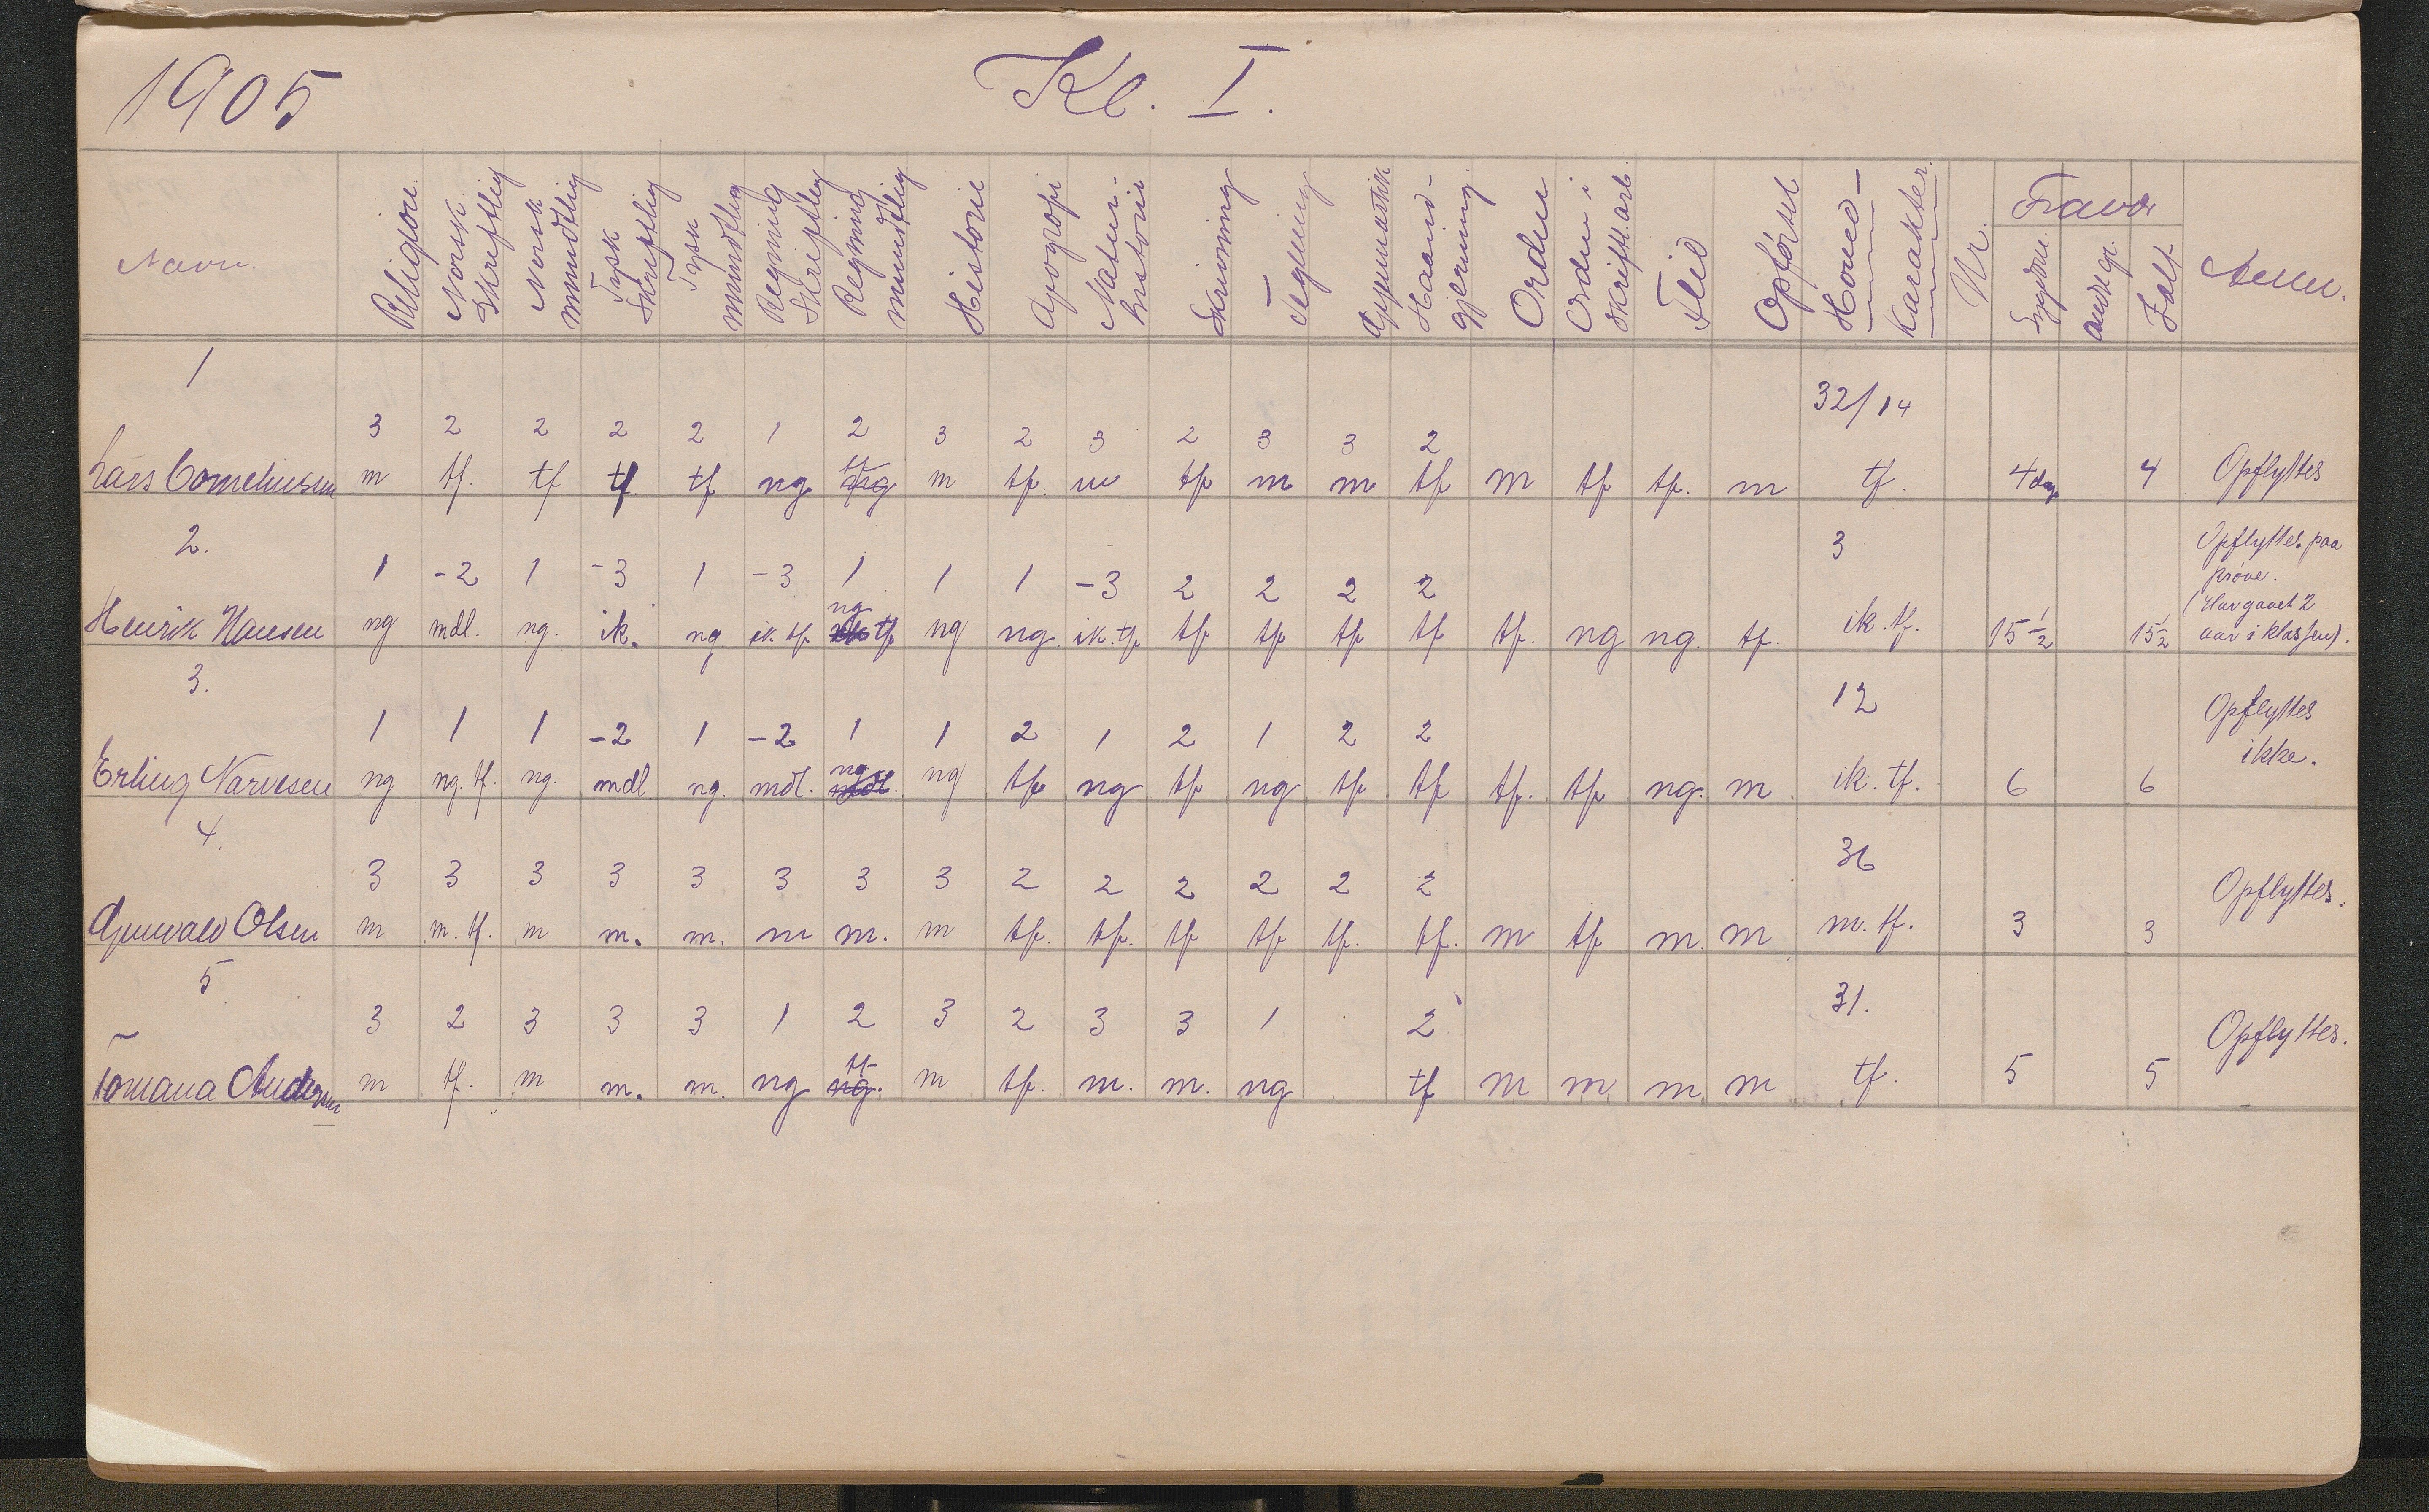 1905
Kl. I.
Navn. Religion. Norsk Skreftlig Norsk mundtlig Tysk Skreftlig Tysk mundtlig Regning Skreftlig Regning mundtlig Historie Geografi Natur-historie Skrivning Tegning Gymnastik Haand-gjerning. Orden Orden i skriftl. arb. Flid Opførsel Hoved-Karakter. Nr. Fravær Sygdom andre gr. Ialt Anm.
1
32/14
3 2 2 2 2 1 2 3 2 3 2 3 3 2
Lars Corneliussen m tf. tf tf tf ng tf m tf. m tf m m tf m tf tf. m tf. 4 dag 4 Opflyttes
2.
3
Opflyttes paa
Prøve.
1 -2 1 -3 1 -3 1 1 1 -3 2 2 2 2
(Har gaaet 2
Henrik Hansen ng mdl. ng. ik. ng ik. tf ng tf ng ng. ik. tf tf tf tf tf tf. ng ng. tf. ik. tf. 15 1/2 15 1/2 aar i klassen).
3.
12
1 1 1 -2 1 -2 1 1 2 1 2 1 2 2
Opflyttes
ikke.
Erling Narvesen ng ng. tf. ng. mdl ng. mdl. ng ng tf ng tf ng tf tf tf. tf ng. m ik. tf. 6 6
4.
36
3 3 3 3 3 3 3 3 2 2 2 2 2 2
Opflyttes.
Olsen m m. tf. m m. m. m m. m tf. tf. tf tf tf. tf. m tf m. m m. tf. 3 3
5
31.
3 2 3 3 3 1 2 3 2 3 3 1 2
Opflyttes.
Tomana Andersen m tf. m m. m. ng tf ng. m tf. m. m. ng tf m m m m tf. 5 5